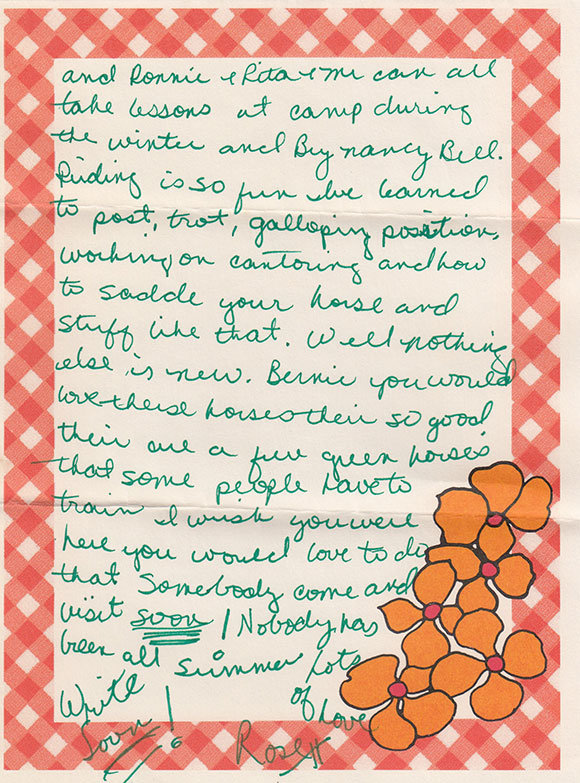 and Ronnie & Rita & me can all
take lessons at camp during
the winter and By nancy Bell.
Riding is so fun Ive learned
to post, trot, galloping position,
working on cantoring and how
to saddle your horse and
stuff like that. Well nothing
else is new. Bernie you would
love these horses their so good
their are a few green horses
that some people have to
train I wish you were
here you would love to do
that Somebody come and
visit soon! Nobody has
been all summer Lots
of Love
Write
Soon!